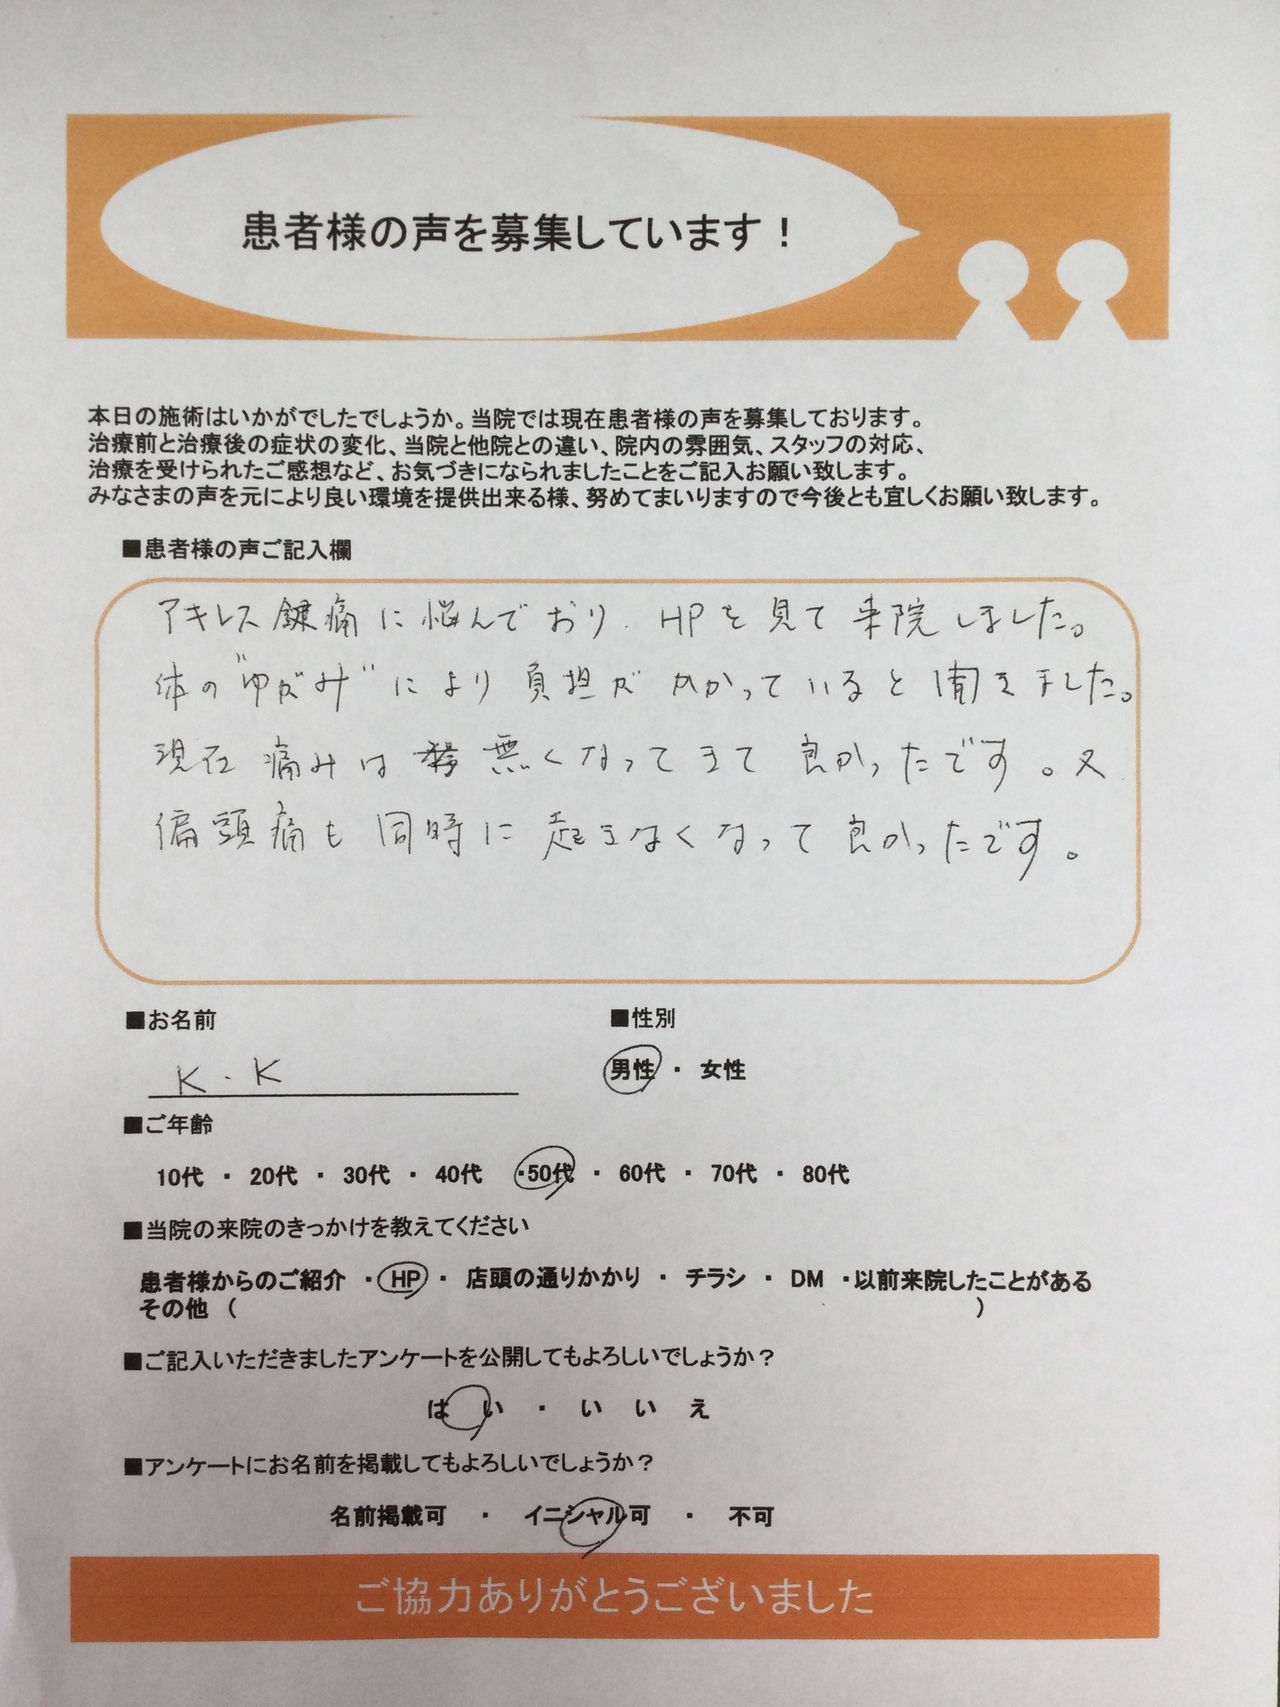 患者様の声を募集しています！
本日の施術はいかがでしたでしょうか。当院では現在患者様の声を募集しております。
治療前と治療後の症状の変化、当院と他院との違い、院内の雰囲気、スタッフの対応、
治療を受けられたご感想など、お気づきになられましたことをご記入お願い致します。
みなさまの声を元により良い環境を提供出来る様、努めてまいりますので今後とも宜しくお願い致します。
■患者様の声ご記入欄
アキレス鍵痛に悩んでおり、HPを見て来院しました。
体の"ゆがみ"により負担がかかっていると聞きました。
現在痛みは無くなってきて良かったです。又
偏頭痛も同時に起きなくなって良かったです。
■お名前 ■性別
K.K 男性 ・ 女性
■ご年齢
10代 ・ 20代 ・ 30代 ・ 40代 ・50代 ・ 60代 ・ 70代 ・ 80代
■当院の来院のきっかけを教えてください
患者様からのご紹介 ・HP ・ 店頭の通りかかり ・ チラシ ・ DM ・以前来院したことがある
その他（ ）
■ご記入いただきましたアンケートを公開してもよろしいでしょうか？
はい ・ いいえ
■アンケートにお名前を掲載してもよろしいでしょうか？
名前掲載可 ・ イニシャル可 ・ 不可
ご協力ありがとうございました